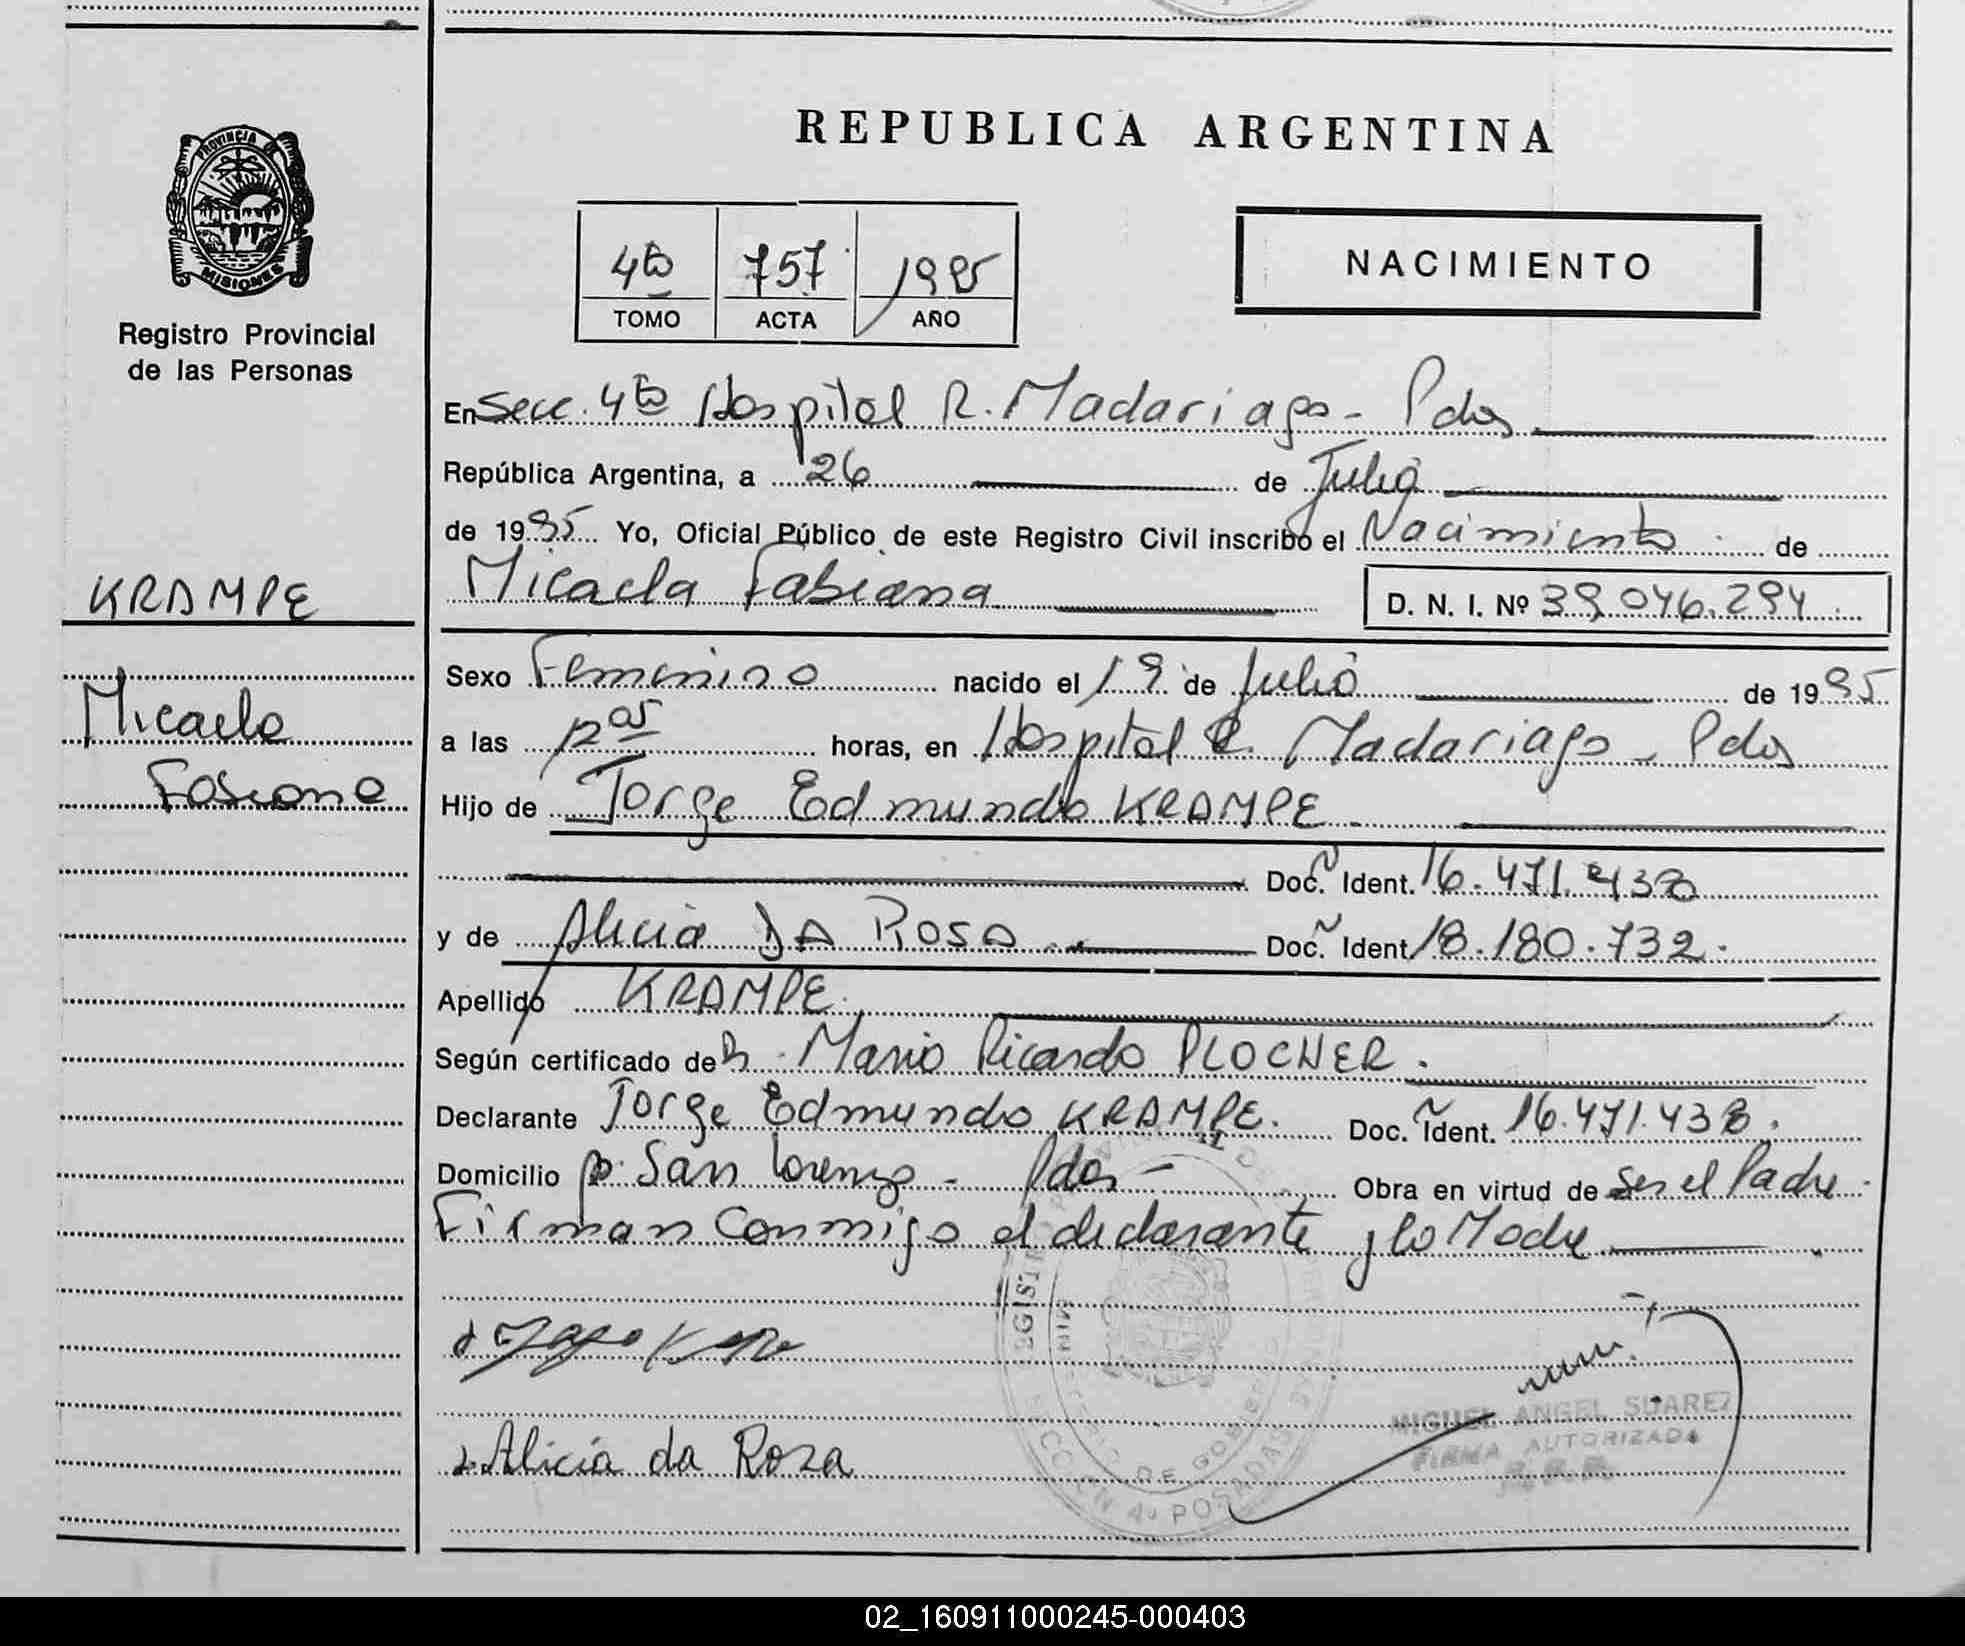 PROVINCIA DE
MISIONES
Registro Provincial
de las Personas
KRAMPE
Micaela
Fabiana
REPUBLICA ARGENTINA
4to 757 1995
TOMO ACTA AÑO
NACIMIENTO
En Secc. 4to Hospital R. Madariaga - Pdas
República Argentina, a 26 de Julio
de 1995 Yo, Oficial Público de este Registro Civil inscribo el Nacimiento de
Micaela Fabiana D. N. I. Nº 39.046.294
Sexo Femenino nacido el 19 de Julio de 1995
a las 12 05 horas, en Hospital R. Madariaga - Pdas
Hijo de Jorge Edmundo KRAMPE
Doc. Ident. 16.471.438
y de Alicia DA ROSA Doc. Ident. 18.180.732.
Apellido KRAMPE.
Según certificado de Mario Ricardo PLOCHER.
Declarante Jorge Edmundo KRAMPE. Doc. Ident. 16.471.438.
Domicilio San Lorenzo - Pdas - Obra en virtud de Ser el Padre
Firman conmigo el declarante y la Madre
Alicia da Roza
MIGUEL ANGEL SUAREZ
FIRMA AUTORIZADA
02_160911000245-000403